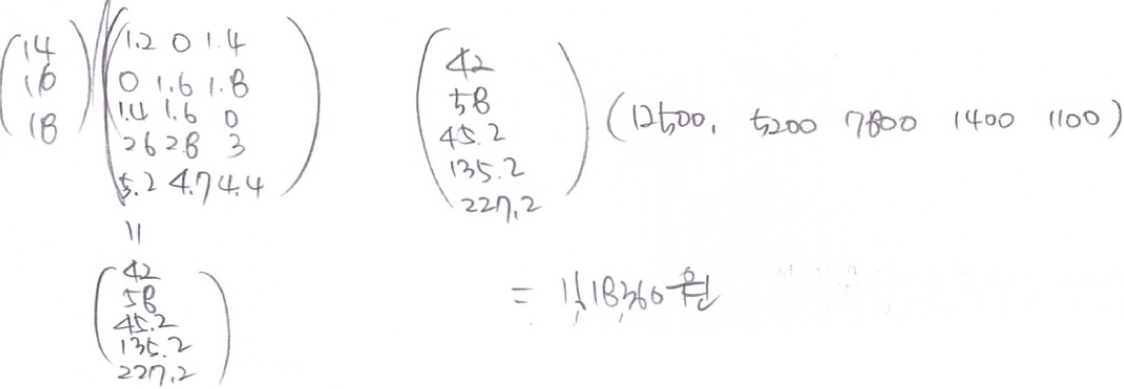 14
16
18
1.2 0 1.4
0 1.6 1.8
1.4 1.6 0
2.6 2.8 3
5.2 4.7 4.4
=
42
58
45.2
135.2
227.2
42
58
45.2
135.2
227.2
(12500, 5200 7800 1400 1100)
= 1,418,360원